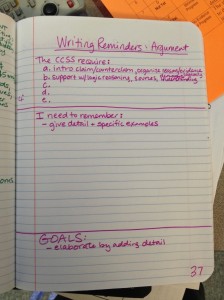 Writing Reminders: Argument
The CCSS require:
a. intro claim/counterclaim, organize reason/evidence
b. support w/logic reasoning, sources,
c.
d.
e.
I need to remember:
- give detail + specific examples
GOALS:
- elaborate by adding detail
37